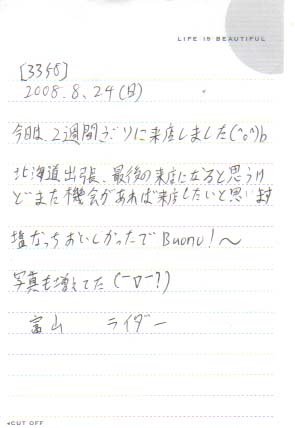 LIFE IS BEAUTIFUL
[3358]
2008.8.24(日)
今日は、2週間ぶりに来店しました(^o^)b
北海道出張、最後の来店になると思うけ
どまた機会があれば来店したいと思います
塩なっちおいしかったでBuono!〜
写真も増えてた(ー▽ー?)
富山 ライダー
◂CUT OFF